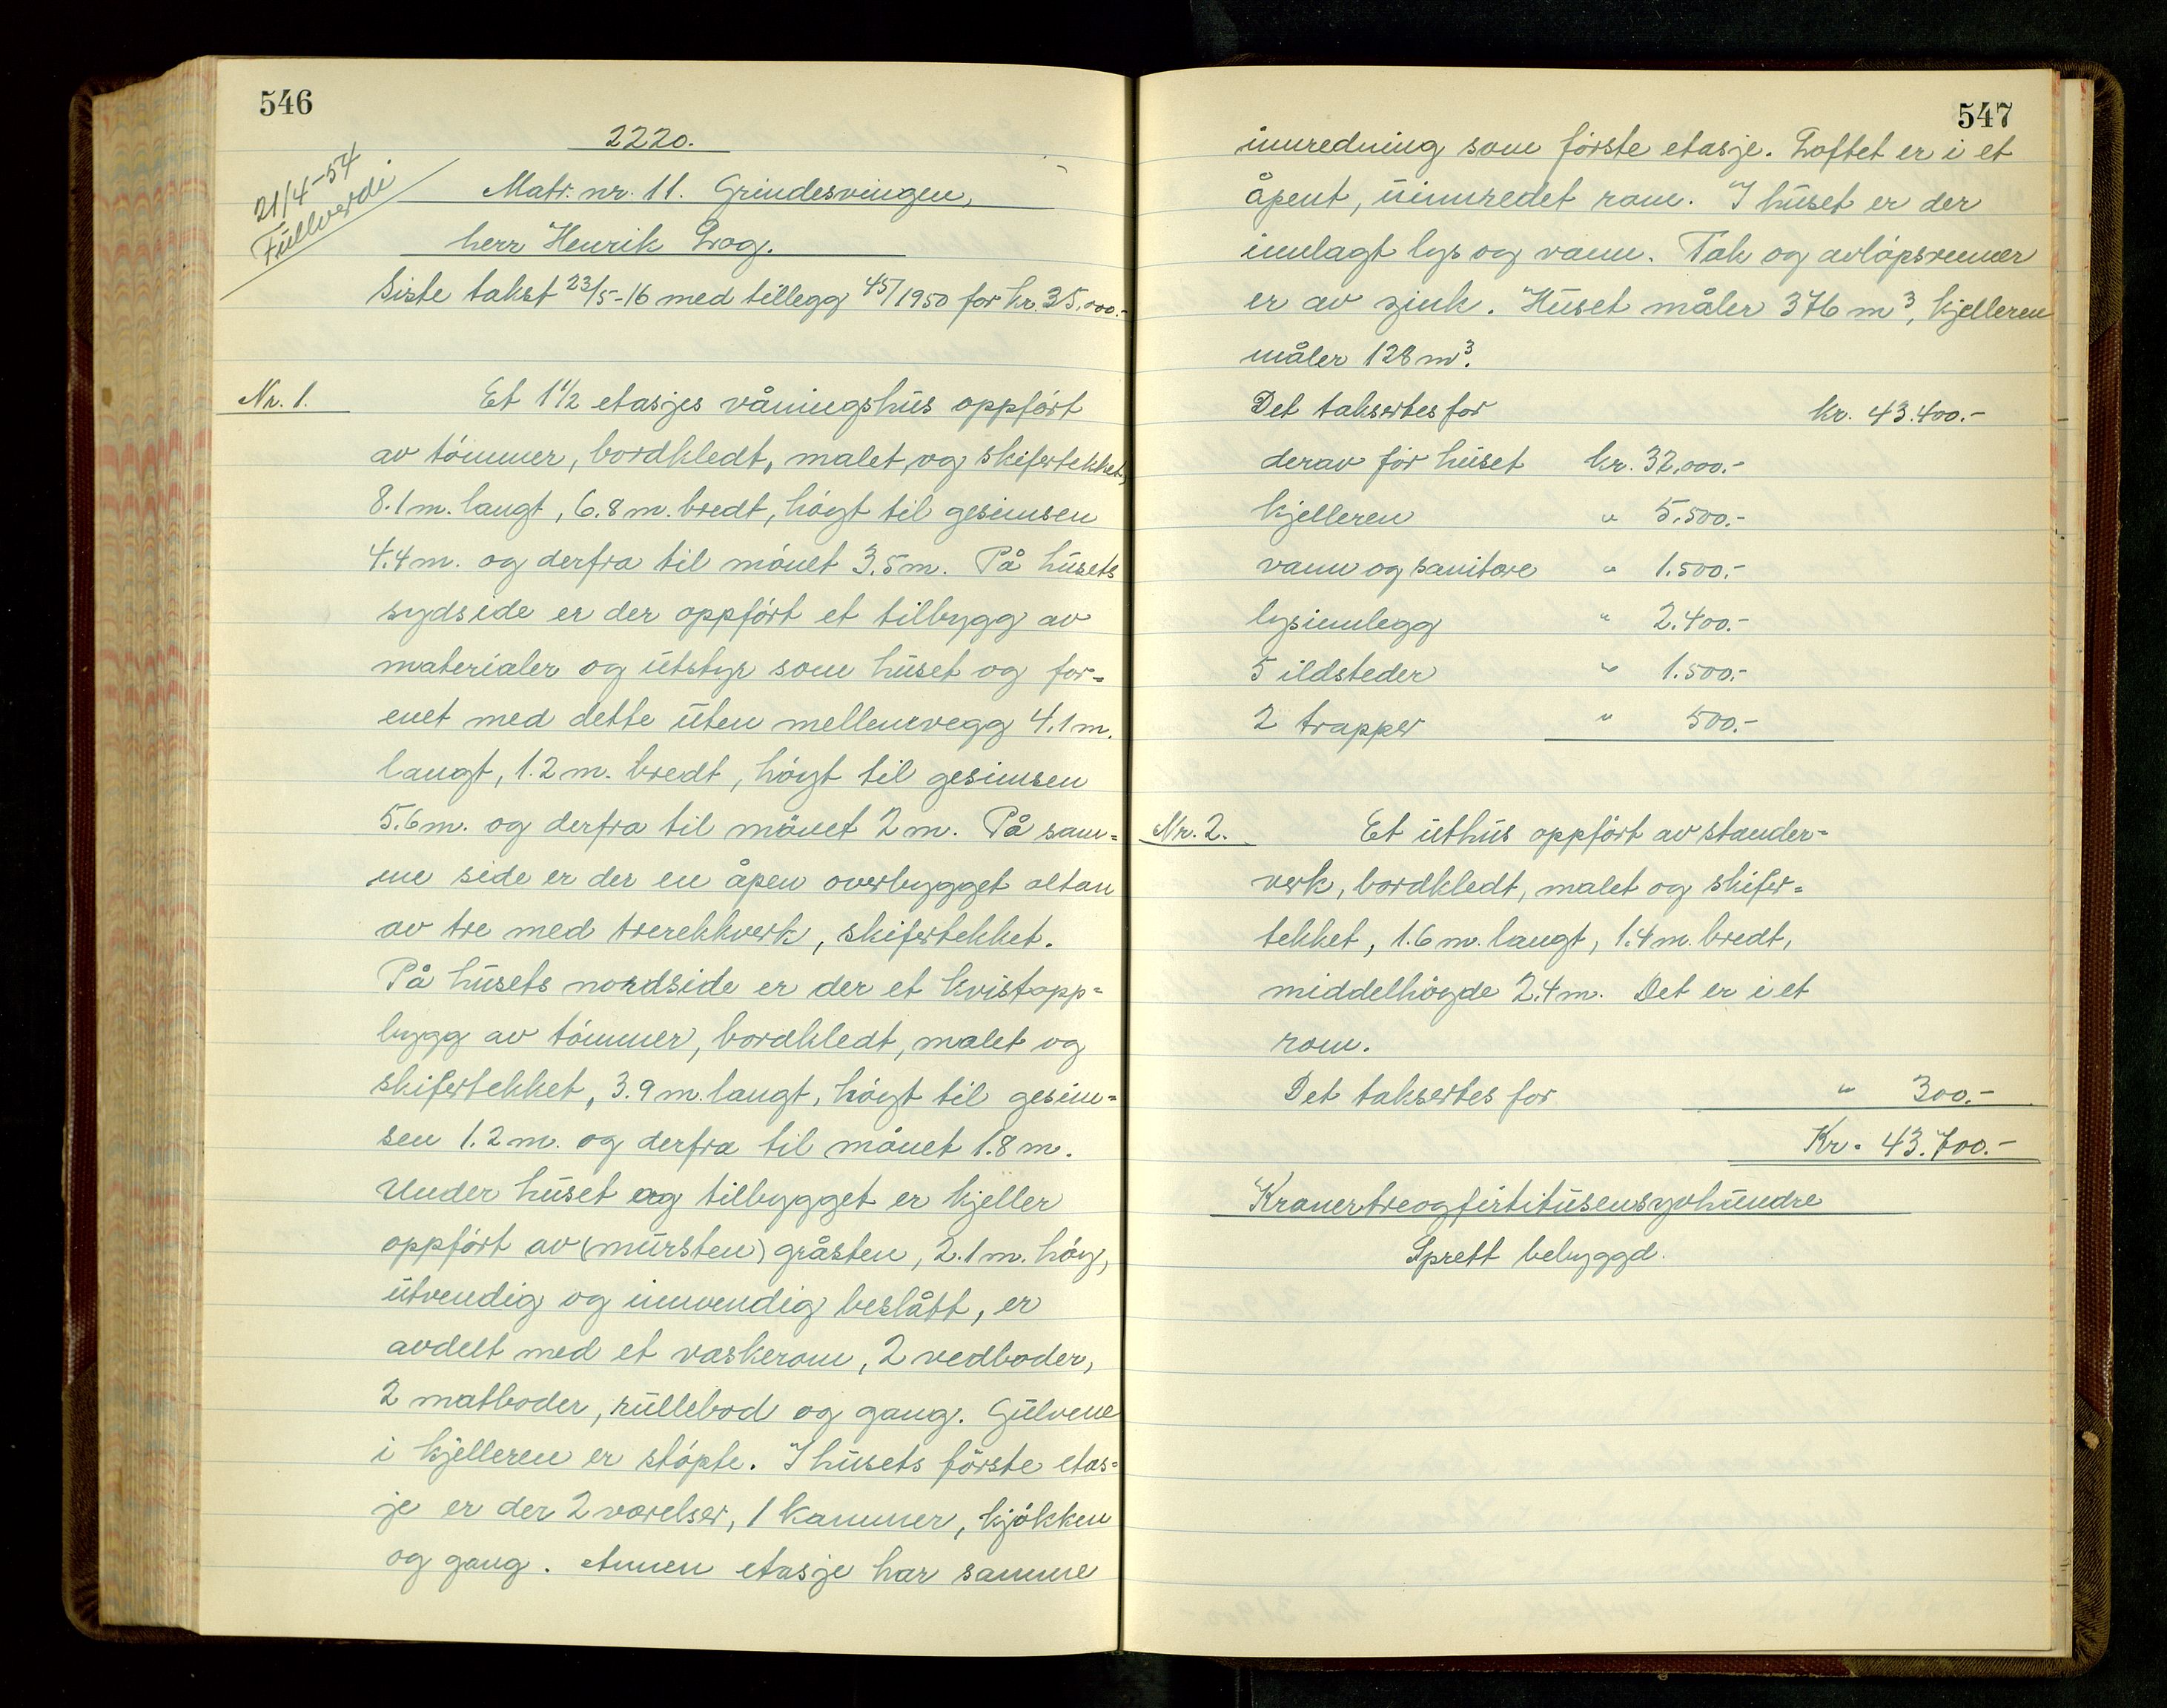 546
2220.
21/4-54
Fullverdi
Matr. nr. 11. Grindesvingen,
herr Henrik Prog.
Siste takst 23/5-16 med tillegg 45/1950 for kr. 35.000.-
Nr. 1.
Et 1 1/2 etasjes våningshus oppført
av tømmer, bordkledt, malet og skifertekket,
8.1 m. langt, 6.8 m. bredt, høgt til gesimsen
4.4 m. og derfra til mønet 3.5 m. På husets
sydside er der oppført et tilbygg av
materialer og utstyr som huset og for=
enet med dette uten mellemvegg 4.1 m.
langt, 1.2 m. bredt, høgt til gesimsen
5.6 m. og derfra til mønet 2 m. På sam=
me side er der en åpen overbygget altan
av tre med trerekkverk, skifertekket.
På husets nordside er der et kvistopp=
bygg av tømmer, bordkledt, malet og
skifertekket, 3.9 m. langt, høgt til gesim=
sen 1.2 m. og derfra til mønet 1.8 m.
Under huset og tilbygget er kjeller
oppført av (mursten) gråsten, 2.1 m. høg,
utvendig og innvendig beslått, er
avdelt med et vaskerom, 2 vedboder,
2 matboder, rullebod og gang. Gulvene
i kjelleren er støpte. I husets første etas=
je er der 2 værelser, 1 kammer, kjøkken
og gang. Annen etasje har samme
547
innredning som første etasje. Loftet er i et
åpent, uinnredet rom. I huset er der
innlagt lys og vann. Tak og avløpsrenner
er av zink. Huset måler 376 m³, kjelleren
måler 128 m³.
Det takseres for kr. 43.400.-
derav for huset kr. 32.000.-
kjelleren " 5.500.-
vann og sanitære " 1.500.-
lysinnlegg " 2.400.-
5 ildsteder " 1.500.-
2 trapper " 500.-
Nr. 2.
Et uthus oppført av stander=
verk, bordkledt, malet og skifer=
tekket, 1.6 m. langt, 1.4 m. bredt,
middelhøgde 2.4 m. Det er i et
rom.
Det taksertes for " 300.-
Kr. 43.700.-
Kronertreogførtitusensyvhundre
Spredt bebyggd.